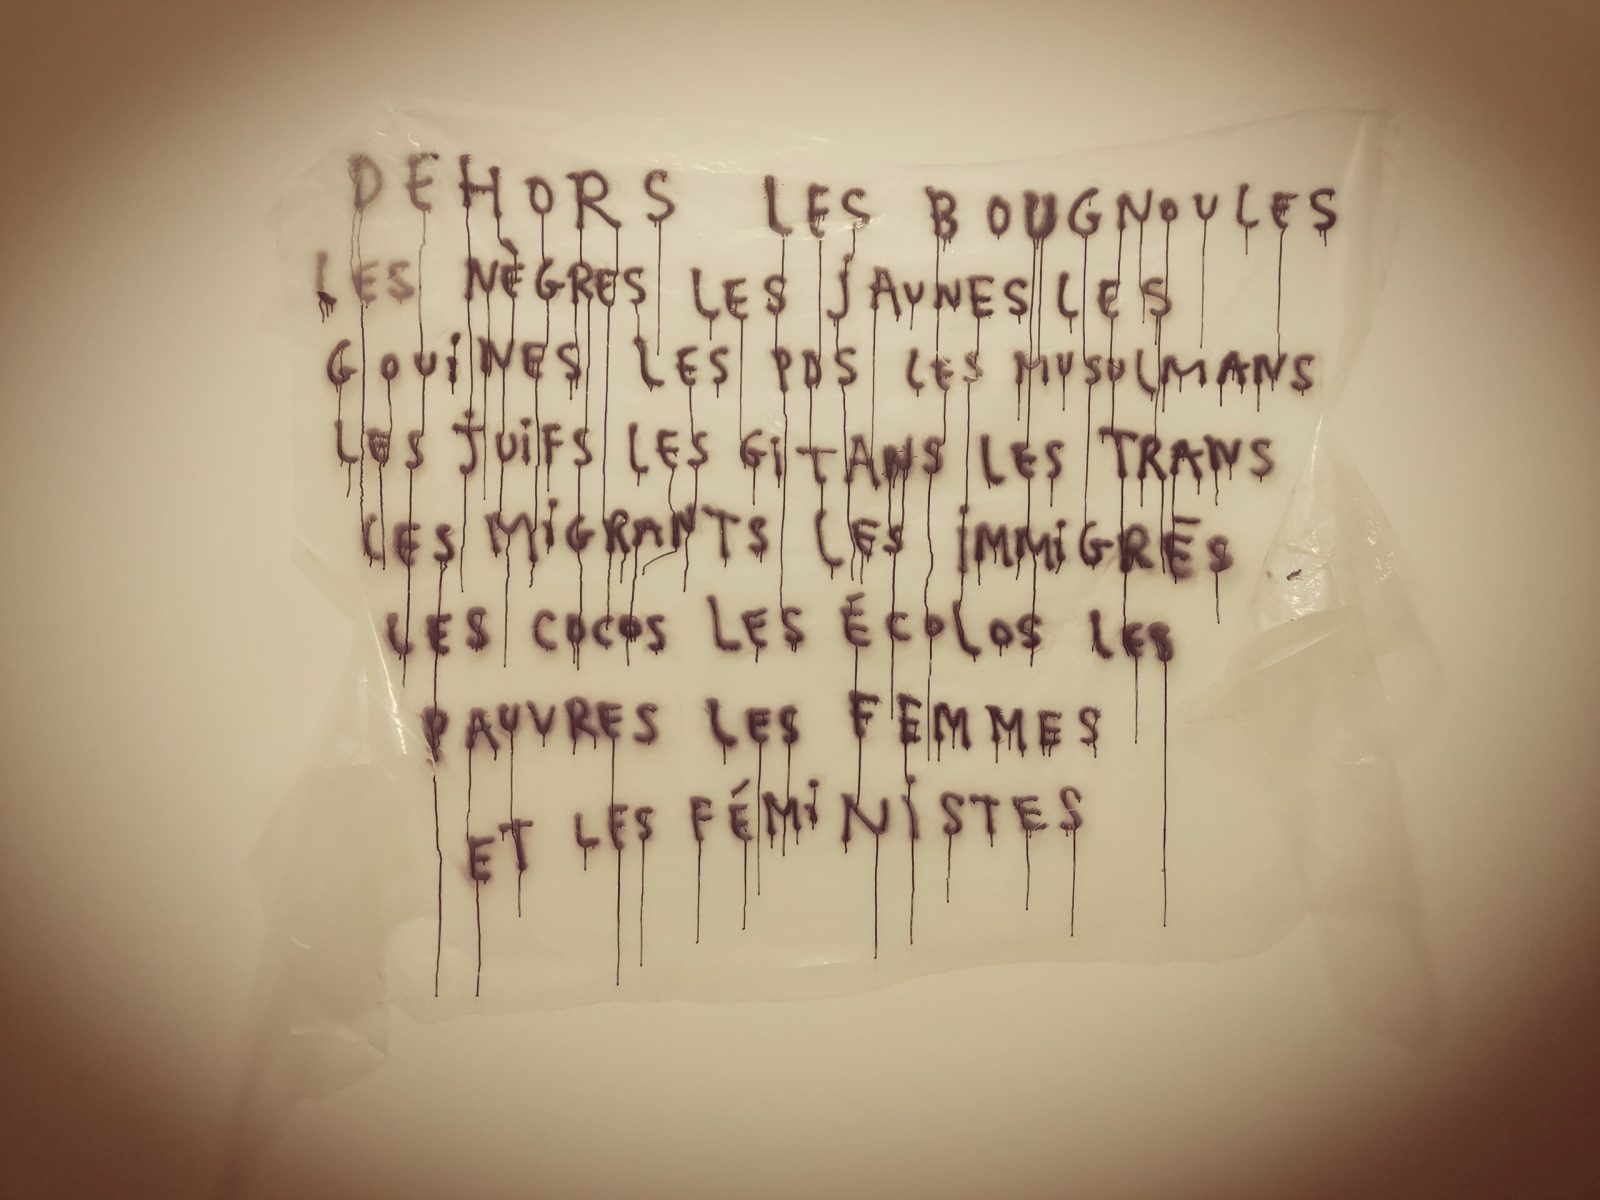 DEHORS LES BOUGNOULES
LES NÈGRES LES JAUNES LES
GOUiNES LES PDS LES MUSULMANS
LES JUiFS LES GiTANS LES TRANS
LES MiGRANTS LES iMMiGRÉS
LES COCOS LES ÉCOLOS LES
PAUVRES LES FEMMES
ET LES FÉMiNiSTES